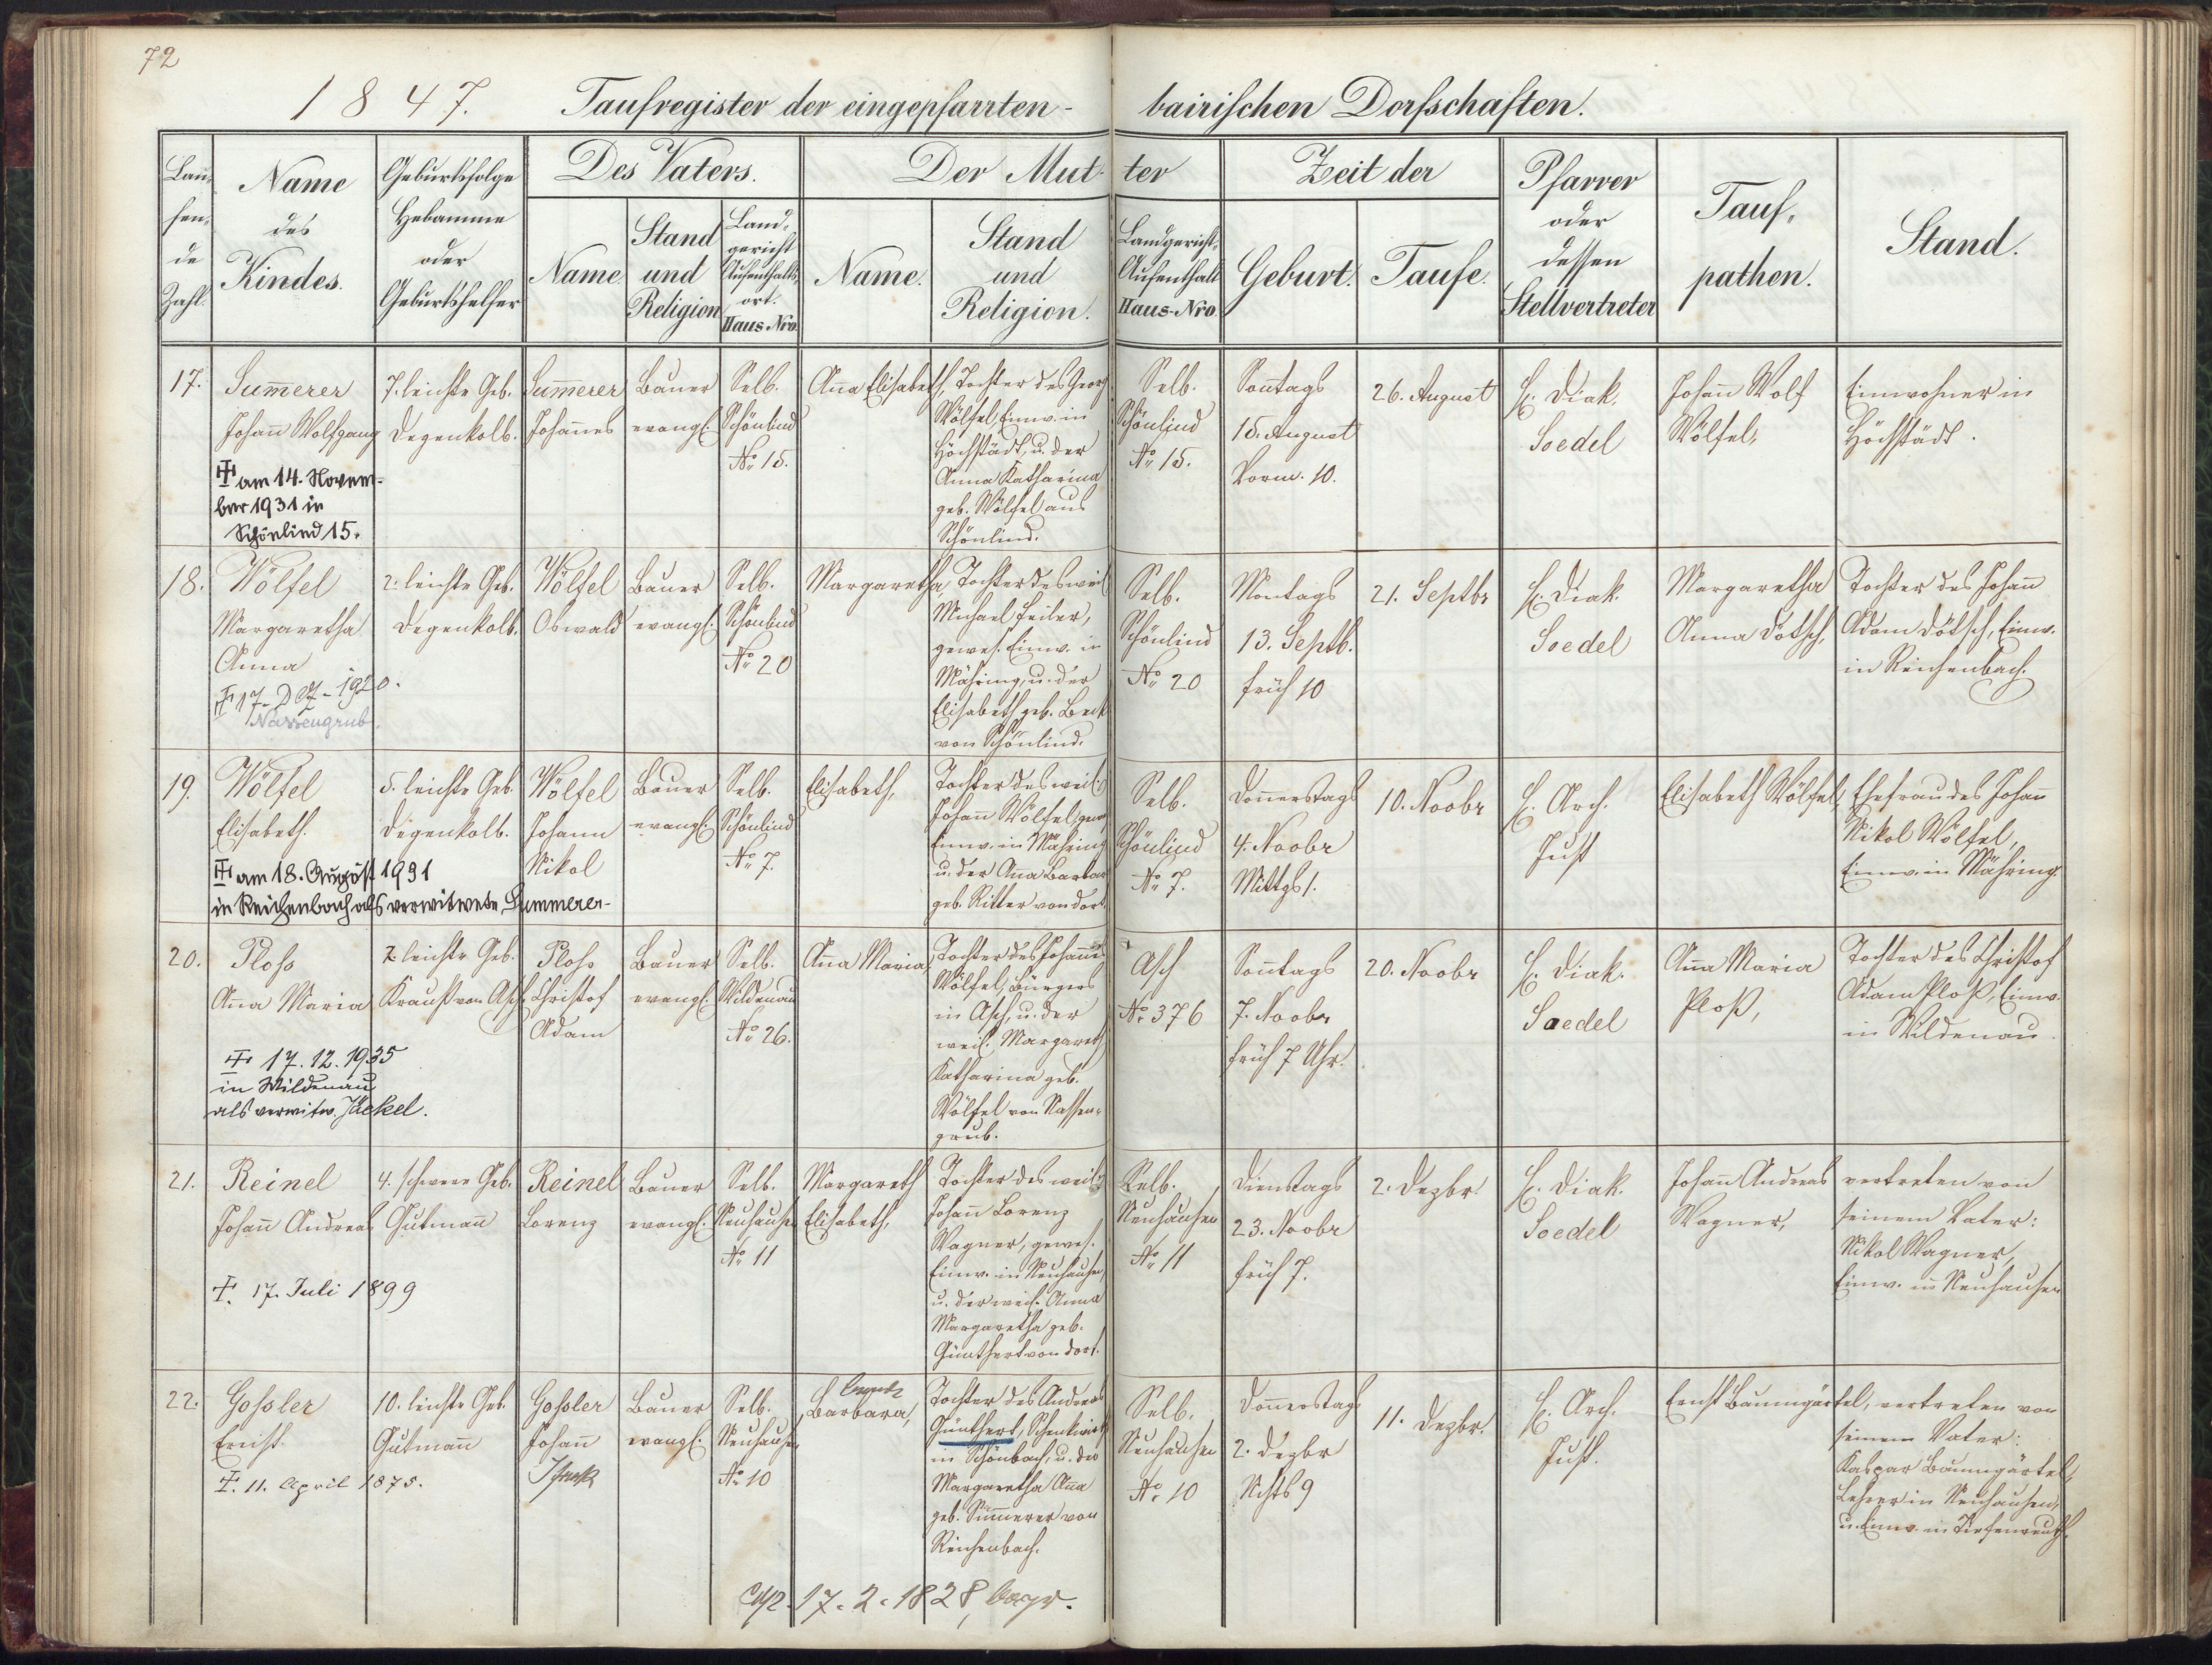 72
1847. Taufregister der eingepfarrten- bairischen Dorfschaften.
Lau-
fen-
de
Zahl.
Name
des
Kindes.
Geburtsfolge
Hebamme
oder
Geburtshelfer
Des Vaters.
Name.
Stand
und
Religion
Land-
gericht
Aufenthalts-
ort.
Haus-Nro.
Der Mut- ter
Name.
Stand
und
Religion.
Landgericht-
Aufenthalt
Haus-Nro.
Zeit der
Geburt.
Taufe.
Pfarrer
oder
dessen
Stellvertreter
Tauf-
pathen.
Stand.
17.
Sum̅erer
Johan̅ Wolfgang
am 14. Novem-
ber 1931 in
Schönlind 15.
7. leichte Geb.
Degenkolb.
Sum̅erer
Johan̅es
Bauer
evangl.
Selb.
Schönlind
No. 15.
An̅a Elisabeth,
Tochter des Georg
Wölfel, Einw. in
Höchstädt, u. der
Anna Katharina
geb. Wölfel aus
Schönlind.
Selb.
Schönlind
No. 15.
Son̅tags
15. August
Vorm. 10.
26. August
H. Diak.
Soedel
Johan̅ Wolf
Wölfel,
Einwohner in
Höchstädt.
18.
Wölfel
Margaretha
Anna
17. Dez. 1920.
Nassengrub.
2. leichte Geb.
Degenkolb.
Wölfel
Oswald
Bauer
evangl.
Selb.
Schönlind
No. 20
Margaretha,
Tochter des weil.
Michael Feiler,
gewes. Einw. in
Mähring, u. der
Elisabeth geb. Beck
von Schönlind.
Selb.
Schönlind
No. 20
Montags
13. Septb.
früh 10
21. Septbr
H. Diak.
Soedel
Margaretha
Anna Dötsch,
Tochter des Johan̅
Adam Dötsch, Einw.
in Reichenbach.
19.
Wölfel
Elisabeth.
am 18. August 1931
in Reichenbach als verwitwete Summerer-
5. leichte Geb.
Degenkolb.
Wölfel
Johann
Nikol
Bauer
evangl.
Selb.
Schönlind
No. 7.
Elisabeth,
Tochter des weil.
Johan̅ Wölfel, gew.
Einw. in Mähring
u. der An̅a Barbar
geb. Ritter von dort.
Selb.
Schönlind
No. 7.
Don̅erstags
4. Novbr
Mittgs 1.
10. Novbr
H. Arch.
Just
Elisabeth Wölfel,
Ehefrau des Johan̅
Nikol Wölfel,
Einw. in Mähring
20.
Ploss
An̅a Maria
17.12.1935
in Wildenau
als verwitw. Jäckel.
2. leichte Geb.
Krauß von Asch.
Ploss
Christof
Adam
Bauer
evangl.
Selb.
Wildenau
No. 26.
An̅a Maria,
Tochter des Johan̅es
Wölfel, Bürgers
in Asch, u. der
weil. Margareth
Katharina geb.
Wölfel von Nassen-
grub.
Asch
No. 376
Son̅tags
7. Novbr
früh 7 Uhr.
20. Novbr
H. Diak.
Soedel
An̅a Maria
Ploß,
Tochter des Christof
Adam Ploß, Einw.
in Wildenau.
21.
Reinel
Johan̅ Andreas
17. Juli 1899
4. schwere Geb.
Gutman̅
Reinel
Lorenz
Bauer
evangl.
Selb.
Neuhausen
No. 11
Margareth
Elisabeth,
Tochter des weil.
Johan̅ Lorenz
Wagner, gewes.
Einw. in Neuhausen,
u. der weil. Anna
Margaretha geb.
Günthert von dort.
Selb.
Neuhausen
No. 11
Dienstags
23. Novbr
früh 7.
2. Dezbr.
H. Diak.
Soedel
Johan̅ Andreas
Wagner,
vertreten von
seinem Vater:
Nikol Wagner,
Einw. in Neuhausen
22.
Gossler
Ernst.
11. April 1875.
10. leichte Geb.
Gutman̅
Gossler
Johan̅
Bauer
evangl.
Selb.
Neuhausen
No. 10
Barbara,
Tochter des Andreas
Günthert, Schenkwirth
in Schönbach, u. der
Margaretha An̅a
geb. Sum̅erer von
Reichenbach.
Selb.
Neuhausen
No. 10
Don̅erstags
2. Dezbr
Nchts 9
11. Dezbr.
H. Arch.
Just.
Ernst Baumgärtel,
vertreten von
seinem Vater:
Kaspar Baumgärtel,
Lehrer in Neuhausen,
u. Einw. in Tiefenreuth.
17.2.1828,